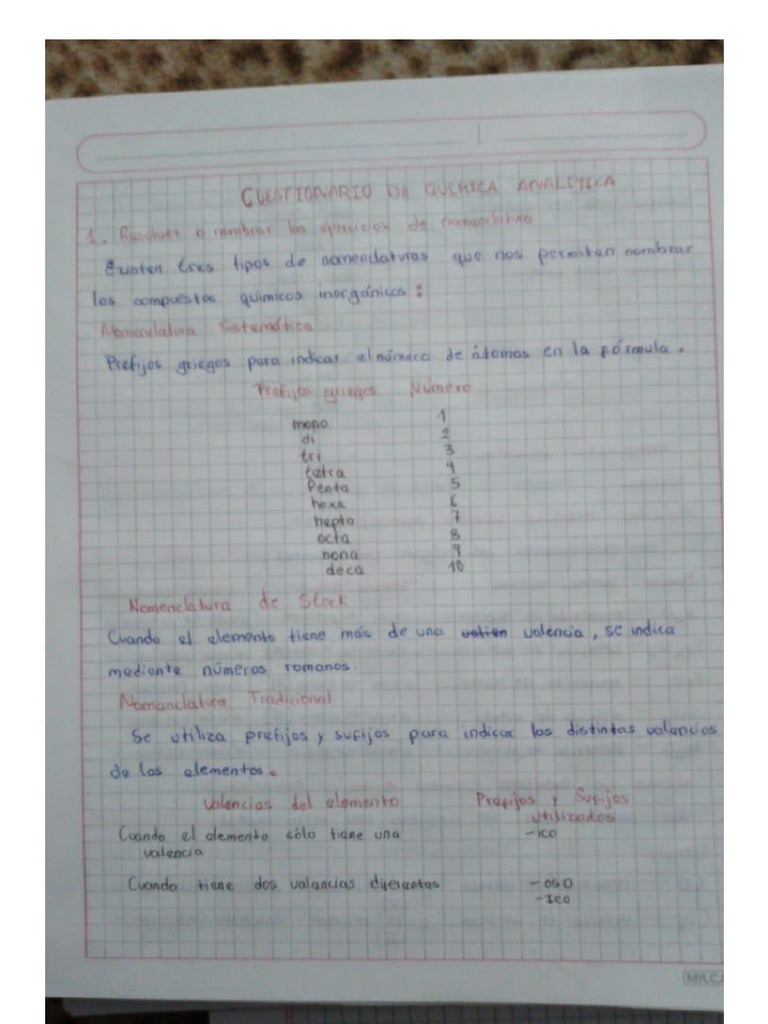 CUESTIONARIO DE QUIMICA ANALITICA
1. Resolver o nombrar los ejercicios de nomenclatura
Existen tres tipos de nomenclaturas que nos permiten nombrar
los compuestos quimicos inorgánicos:
Nomenclatura Sistemática
Prefijos griegos para indicar el número de átomos en la fórmula.
Prefijos griegos Número
mono 1
di 2
tri 3
tetra 4
Penta 5
hexa 6
hepto 7
octa 8
nona 9
deca 10
Nomenclatura de Stock
Cuando el elemento tiene más de una valencia, se indica
mediante números romanos
Nomanclatura Tradicional
Se utiliza prefijos y sufijos para indicar las distintas valencias
de los elementos.
Valencias del elemento Prefijos y Sufijos
utilizados
Cuando el elemento sólo tiene una -ico
valencia
Cuando tiene dos valencias diferentes -oso
-Ico